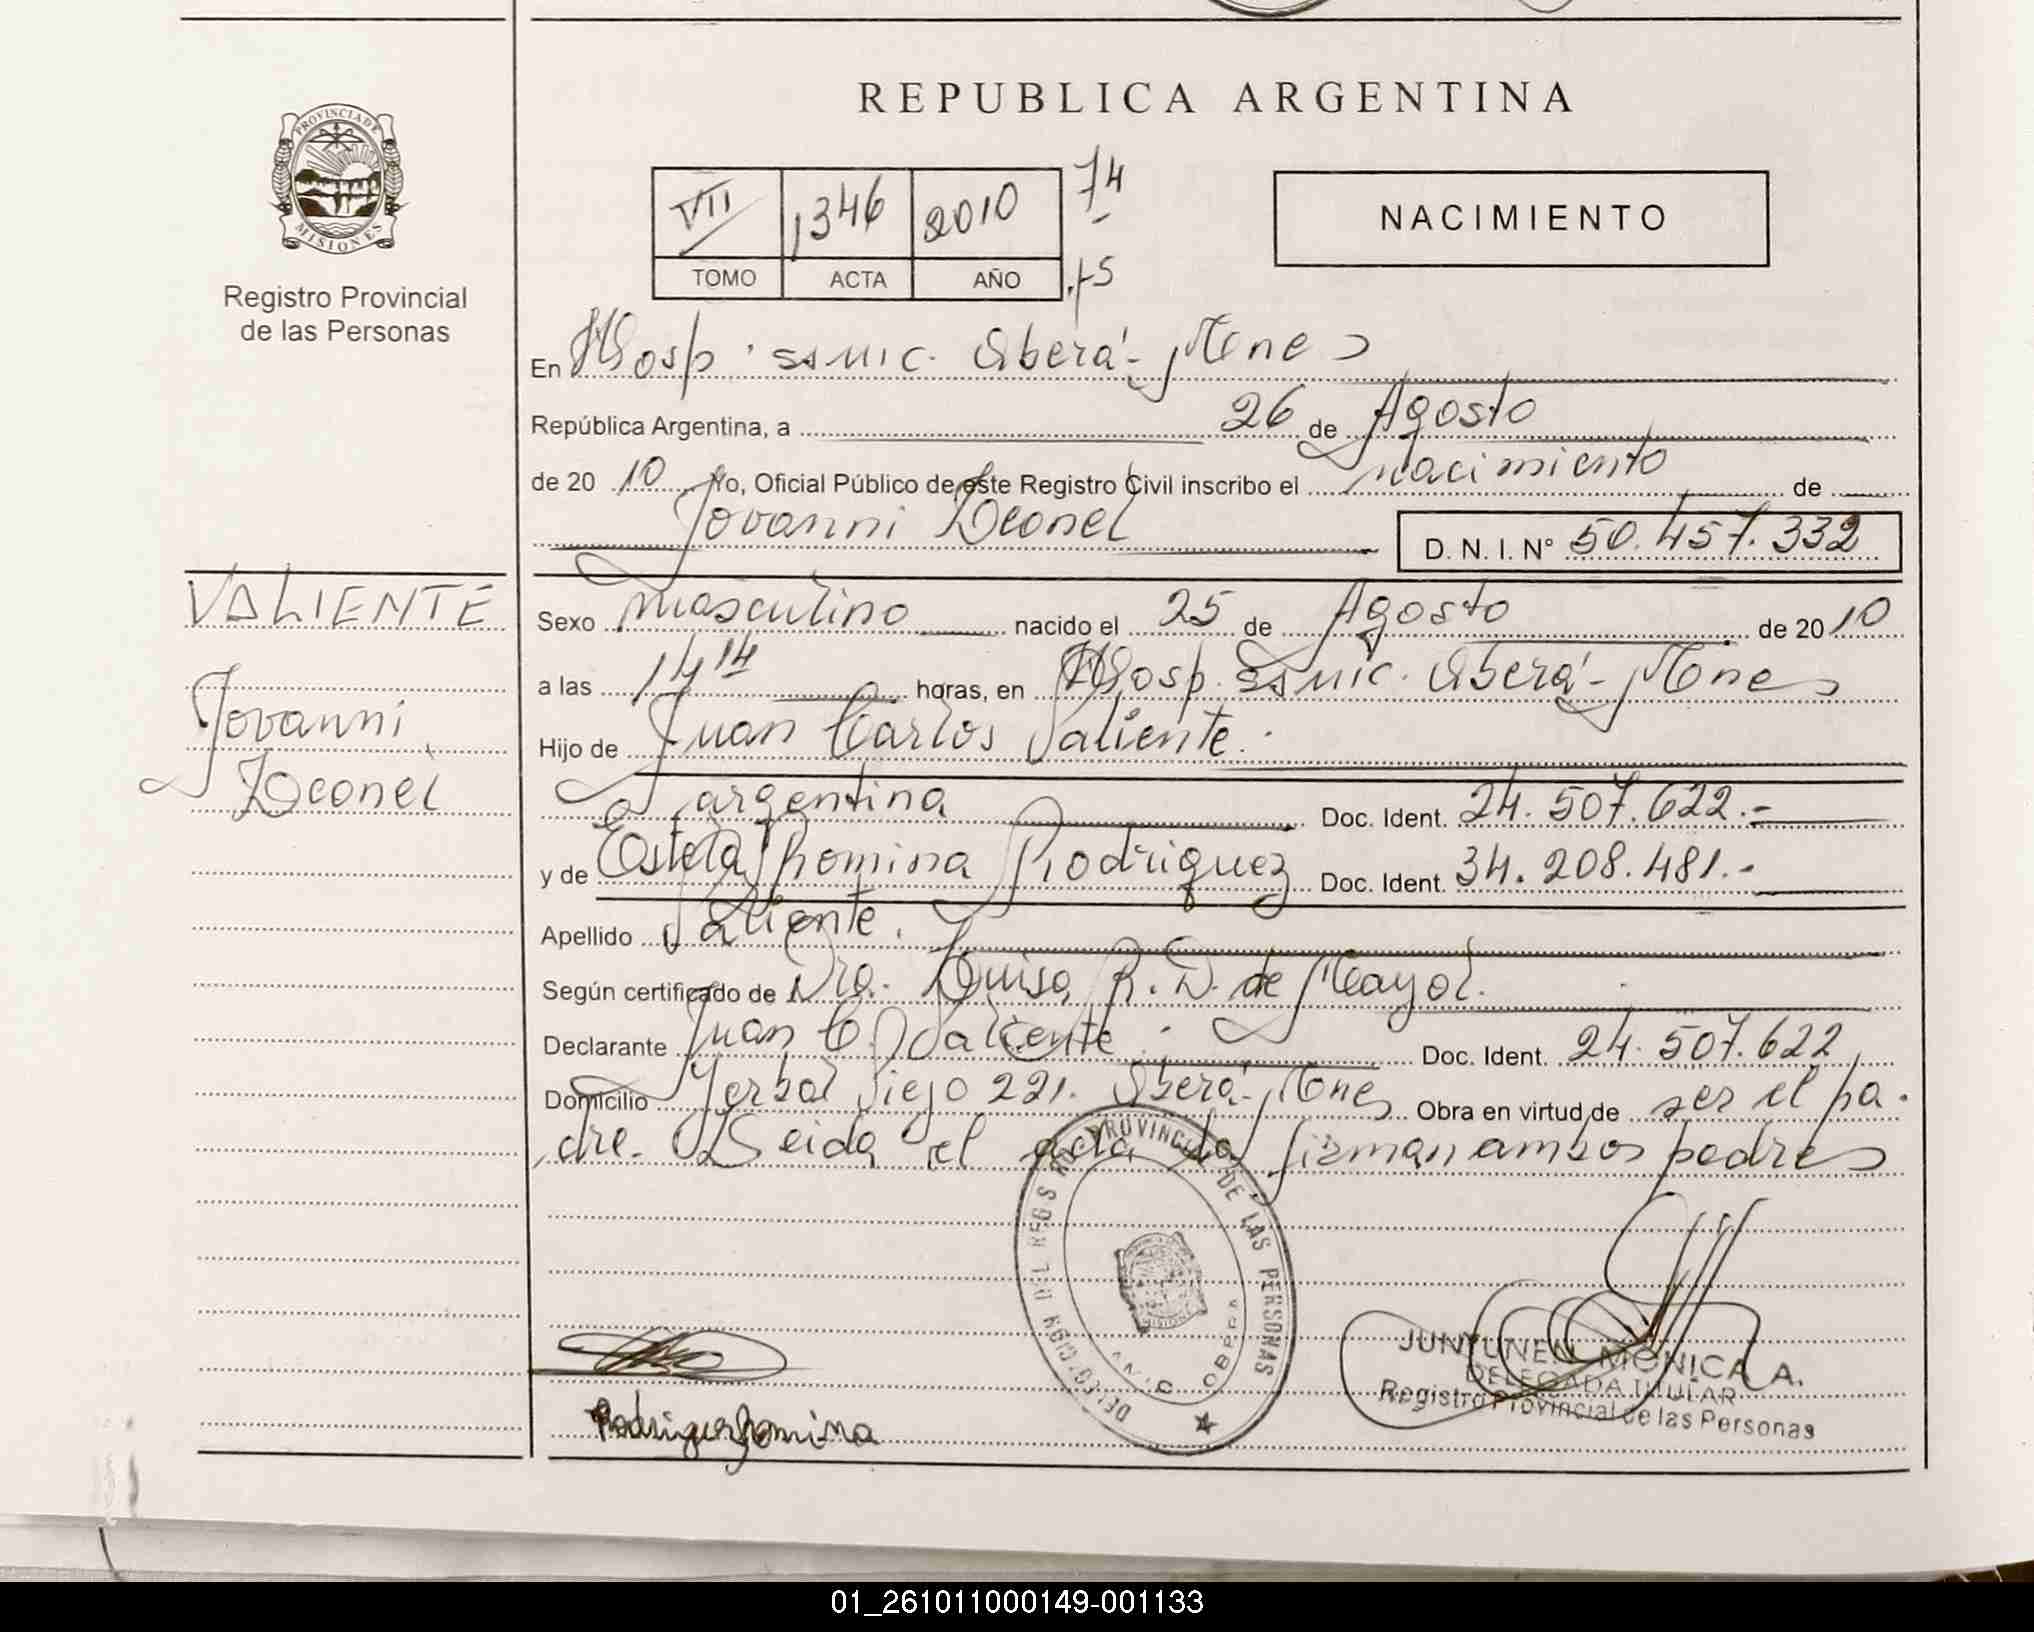 REPUBLICA ARGENTINA
PROVINCIA DE
MISIONES
Registro Provincial
de las Personas
VII 1346 2010 74
TOMO ACTA AÑO 75
NACIMIENTO
En Hosp. SSMIC. Oberá - Mnes
República Argentina, a 26 de Agosto
de 20 10 Yo, Oficial Público de este Registro Civil inscribo el nacimiento de
Jovanni Leonel D. N. I. N° 50.457.332
VALIENTE
Jovanni
Leonel
Sexo masculino nacido el 25 de Agosto de 20 10
a las 14 14 horas, en Hosp. SSMIC. Oberá - Mnes
Hijo de Juan Carlos Valiente.
argentina Doc. Ident. 24.507.622.-
y de Estela Romina Rodriguez Doc. Ident. 34.208.481.-
Apellido Valiente.
Según certificado de Dra. Luisa R. D. de Mayol.
Declarante Juan C. Valiente Doc. Ident. 24.507.622
Domicilio Yerbal Viejo 221. Oberá - Mnes Obra en virtud de ser el pa
dre. Leida el acta la firman ambos padres
PROVINCIAL DE LAS PERSONAS
Rodriguez Romina
JUNYUNEN MONICA A.
DELEGADA TITULAR
Registro Provincial de las Personas
01_261011000149-001133